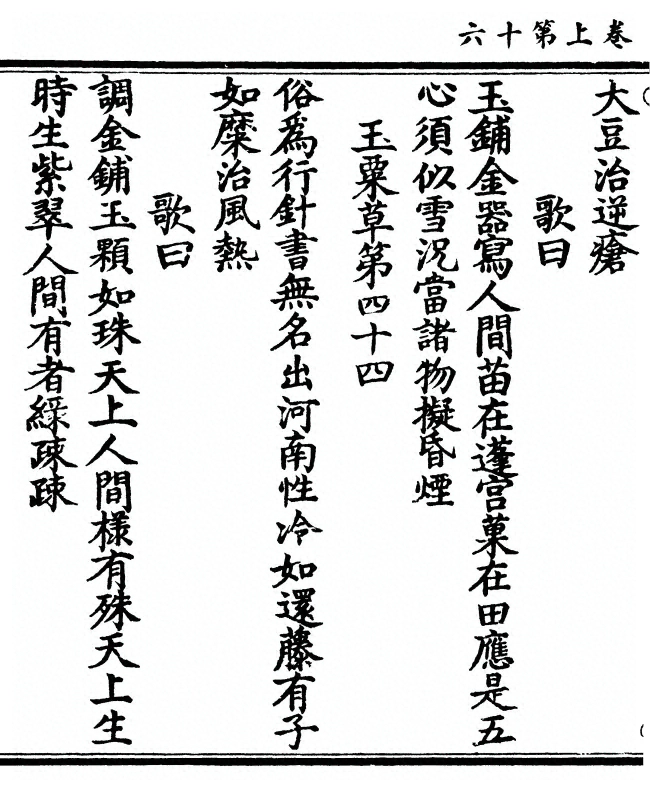 卷上第十六
大豆治逆瘡
歌曰
玉鋪金器寫人間苗在蓬宮菓在田應是五
心須似雪況當諸物擬昏煙
玉粟草第四十四
俗爲行針書無名出河南性冷如還藤有子
如糜治風熱
歌曰
調金鋪玉顆如珠天上人間樣有殊天上生
時生紫翠人間有者緑疎疎